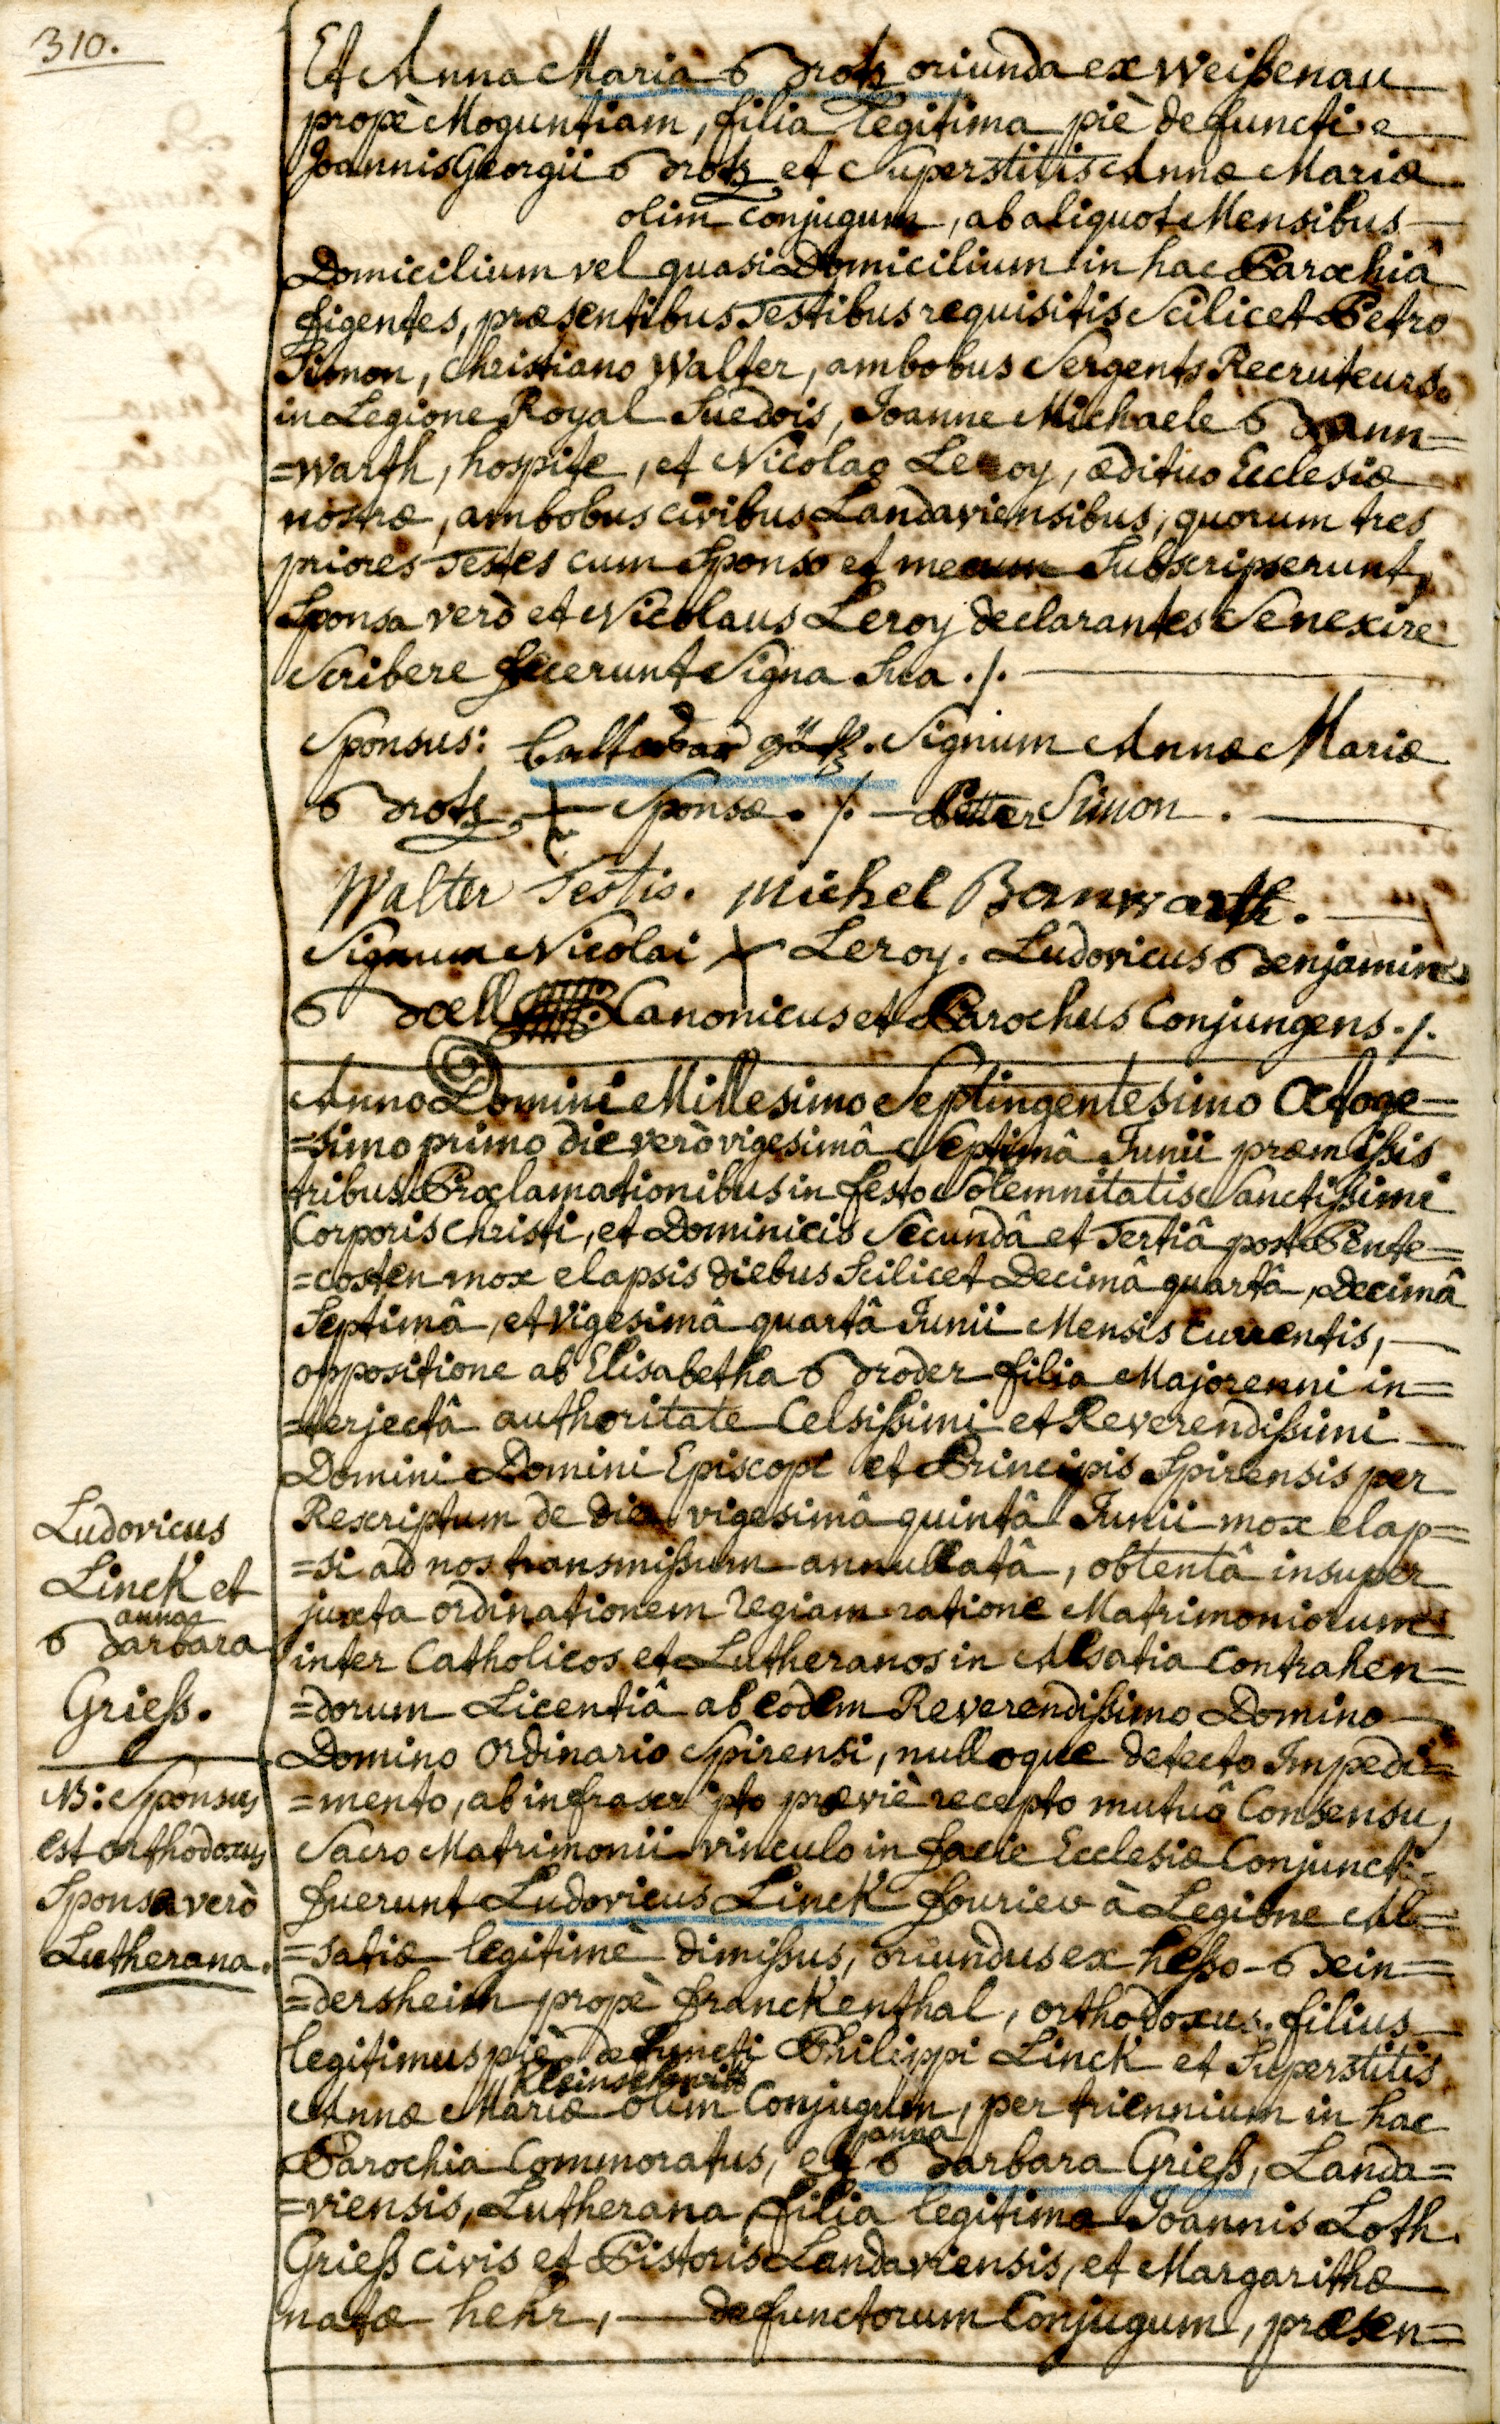 310.
Et Anna Maria Brotz oriunda ex Weißenau
propè Moguntiam, filia legitima piè defuncti
Joannis Georgii Brotz et Superstitis Annæ Mariæ
olim conjugum, ab aliquot Mensibus
Domicilium vel quasi Domicilium in hac Parochiâ
figentes, præsentibus Testibus requisitis Scilicet Petro
Simon, Christiano Walter, ambobus Sergents Recruteurs
in Legione Royal Suedois, Joanne Michaele Bann=
=warth, hospite, et Nicolao Leroy, ædituo Ecclesiæ
nostræ, ambobus civibus Landaviensibus, quorum tres
priores Testes cum Sponso et mecum Subscripserunt,
Sponsa verò et Nicolaus Leroy declarantes Se nescire
Scribere fecerunt Signa Sua ./.
Sponsus: Balthasar götz. Signum Annæ Mariæ
Brotz, + Sponsæ. ./. Petter Simon.
Walter Testis. Michel Banwarth.
Signum Nicolai + Leroy. Ludovicus Benjamin
Boell Canonicus et Parochus Conjungens ./.
Anno Domini Millesimo Septingentesimo Octoge=
=simo primo die verò vigesimâ Septimâ Junii præmißis
tribus Proclamationibus in festo Solemnitatis Sanctißimi
Corporis Christi, et Dominicis Secundâ et Tertiâ post Pente=
=costen mox elapsis diebus Scilicet Decimâ quartâ, Decimâ
Septimâ, et vigesimâ quartâ Junii Mensis Currentis,
oppositione ab Elisabetha Broder filia Majorenni in=
=terjectâ authoritate Celsißimi et Reverendißimi
Domini Domini Episcopi et Principis Spirensis per
Rescriptum de die vigesimâ quintâ Junii mox elap=
=si ad nos transmißum annullatâ, obtentâ insuper
juxta ordinationem regiam ratione Matrimoniorum
inter Catholicos et Lutheranos in Alsatia Contrahen=
=dorum Licentiâ ab eodem Reverendißimo Domino
Domino Ordinario Spirensi, nulloque detecto Impedi=
=mento, ab infrascripto præviè recepto mutuô Consensu,
Sacro Matrimonii vinculo in facie Ecclesiæ Conjuncti
fuerunt Ludovicus Linck fourier à Legione Al=
=satiæ legitimè dimißus, oriundus ex heßo-Bein=
=dersheim propè franckenthal, orthodoxus, filius
legitimus piè defuncti Philippi Linck et Superstitis
Kleinschmitt
Annæ Mariæ olim Conjugum, per triennium in hac
anna
Parochia Commoratus, et Barbara Grieß, Landa=
=viensis, Lutherana, filia legitima Joannis Loth
Grieß civis et Pistoris Landaviensis, et Margarithæ
natæ hehr, defunctorum Conjugum, præsen=
Ludovicus
Linck et
anna
Barbara
Grieß.
NB: Sponsus
est orthodoxus
Sponsa verò
Lutherana.